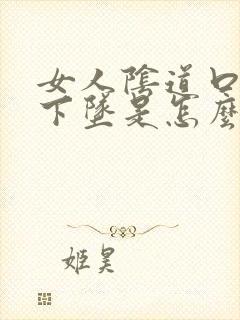 女人陰道口
下墜是怎麼
姬昊